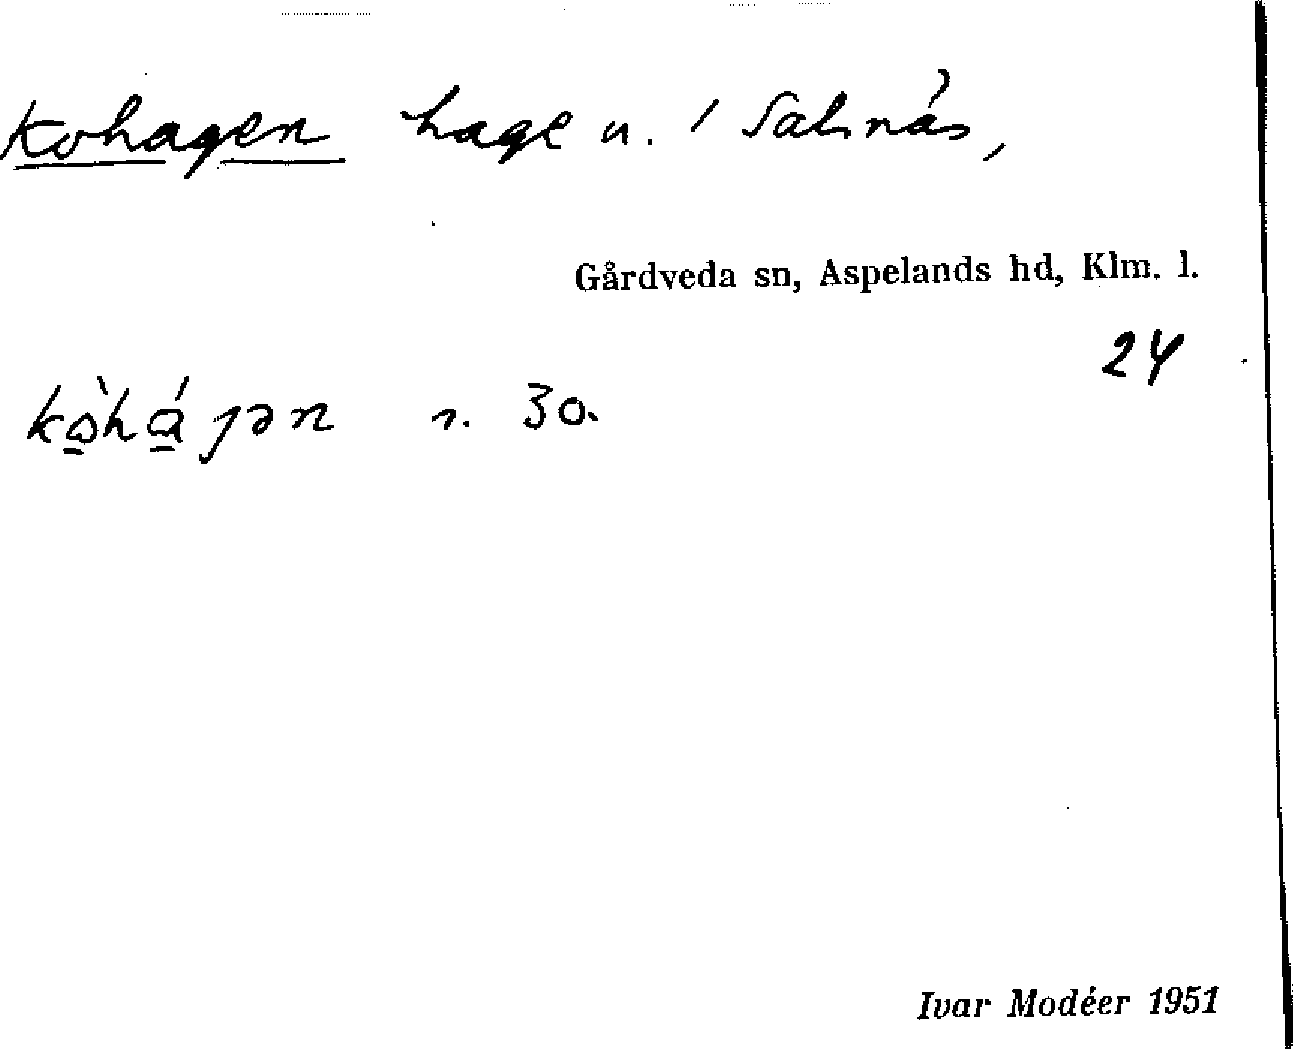 Kohagen hage u. / Salsnäs,
Gårdveda sn, Aspelands hd, Klm. l.
24
kòhájən r. 30.
Ivar Modéer 1951